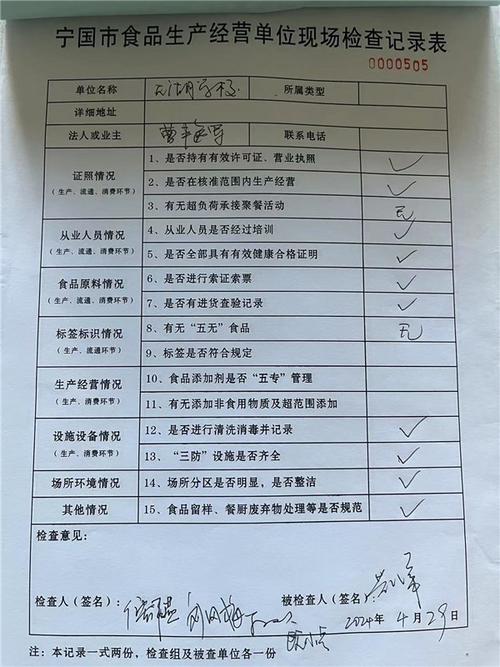 宁国市食品生产经营单位现场检查记录表
0000505
单位名称 学校 所属类型
详细地址
法人或业主 曹 联系电话
证照情况
(生产、流通、消费环节)
1、是否持有有效许可证、营业执照 ✓
2、是否在核准范围内生产经营 ✓
3、有无超负荷承接聚餐活动 无
从业人员情况
(生产、流通、消费环节)
4、从业人员是否经过培训 ✓
5、是否全部具有有效健康合格证明 ✓
食品原料情况
(生产、流通、消费环节)
6、是否进行索证索票 ✓
7、是否有进货查验记录 ✓
标签标识情况
(生产、流通、消费环节)
8、有无“五无”食品 无
9、标签是否符合规定
生产经营情况
(生产、消费环节)
10、食品添加剂是否“五专”管理
11、有无添加非食用物质及超范围添加
设施设备情况
(生产、消费环节)
12、是否进行清洗消毒并记录 ✓
13、“三防”设施是否齐全 ✓
场所环境情况 14、场所分区是否明显，是否整洁 ✓
其他情况 15、食品留样、餐厨废弃物处理等是否规范 ✓
检查意见：
检查人（签名）： 被检查人（签名）：
2024年4月29日
注：本记录一式两份，检查组及被查单位各一份